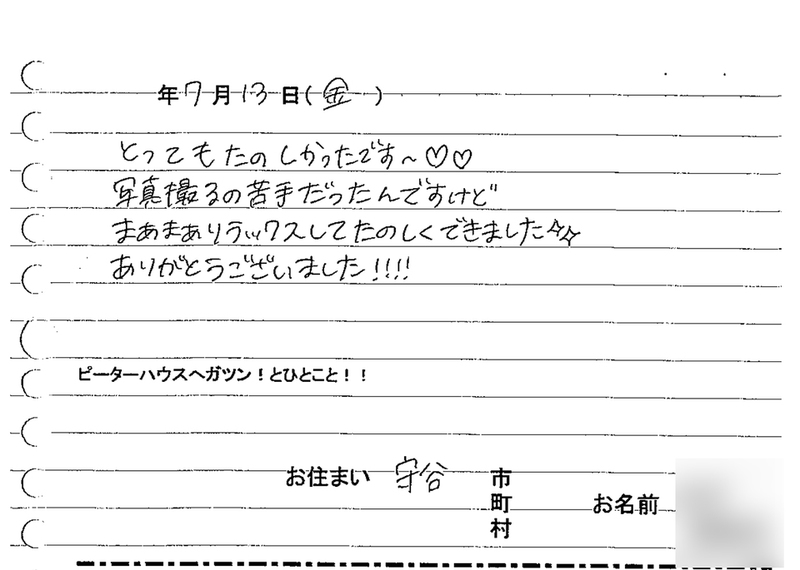 年7月13日(金)
とってもたのしかったです〜♡♡
写真撮るの苦手だったんですけど
まあまありラックスしてたのしくできました☆☆
ありがとうございました!!!!
ピーターハウスへガツン！とひとこと！！
お住まい 守谷 市町村 お名前